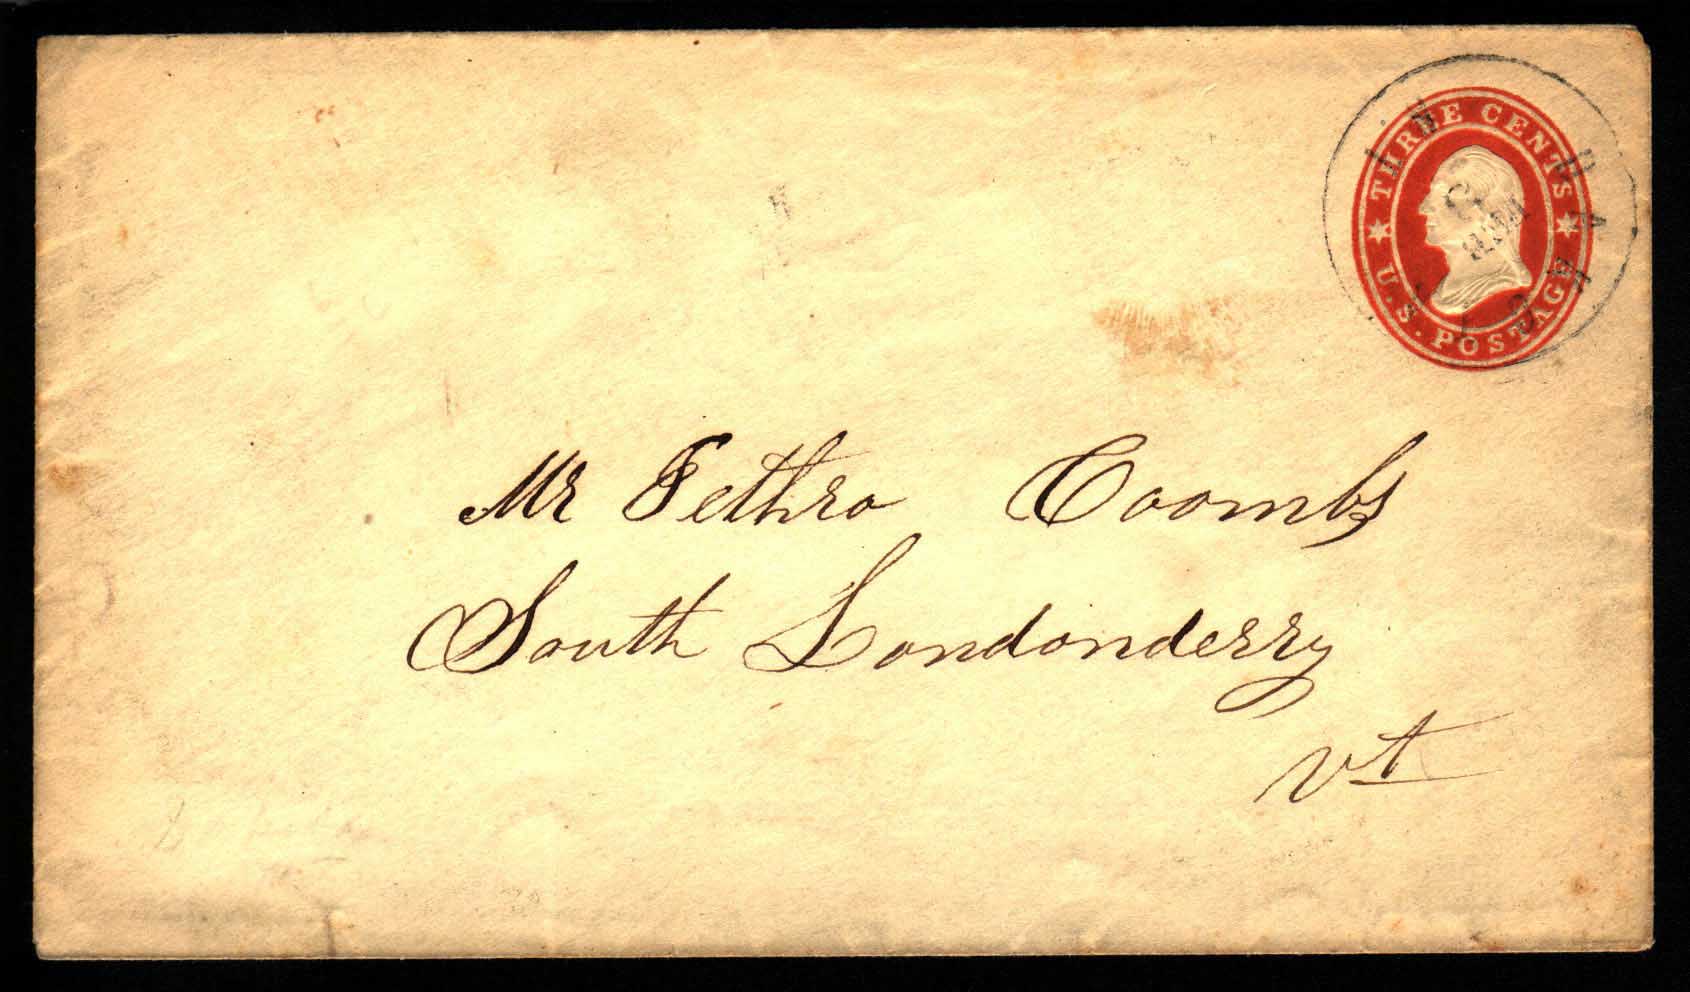 THREE CENTS
U.S. POSTAGE
Mr Jethro Coombs
South Londonderry
Vt